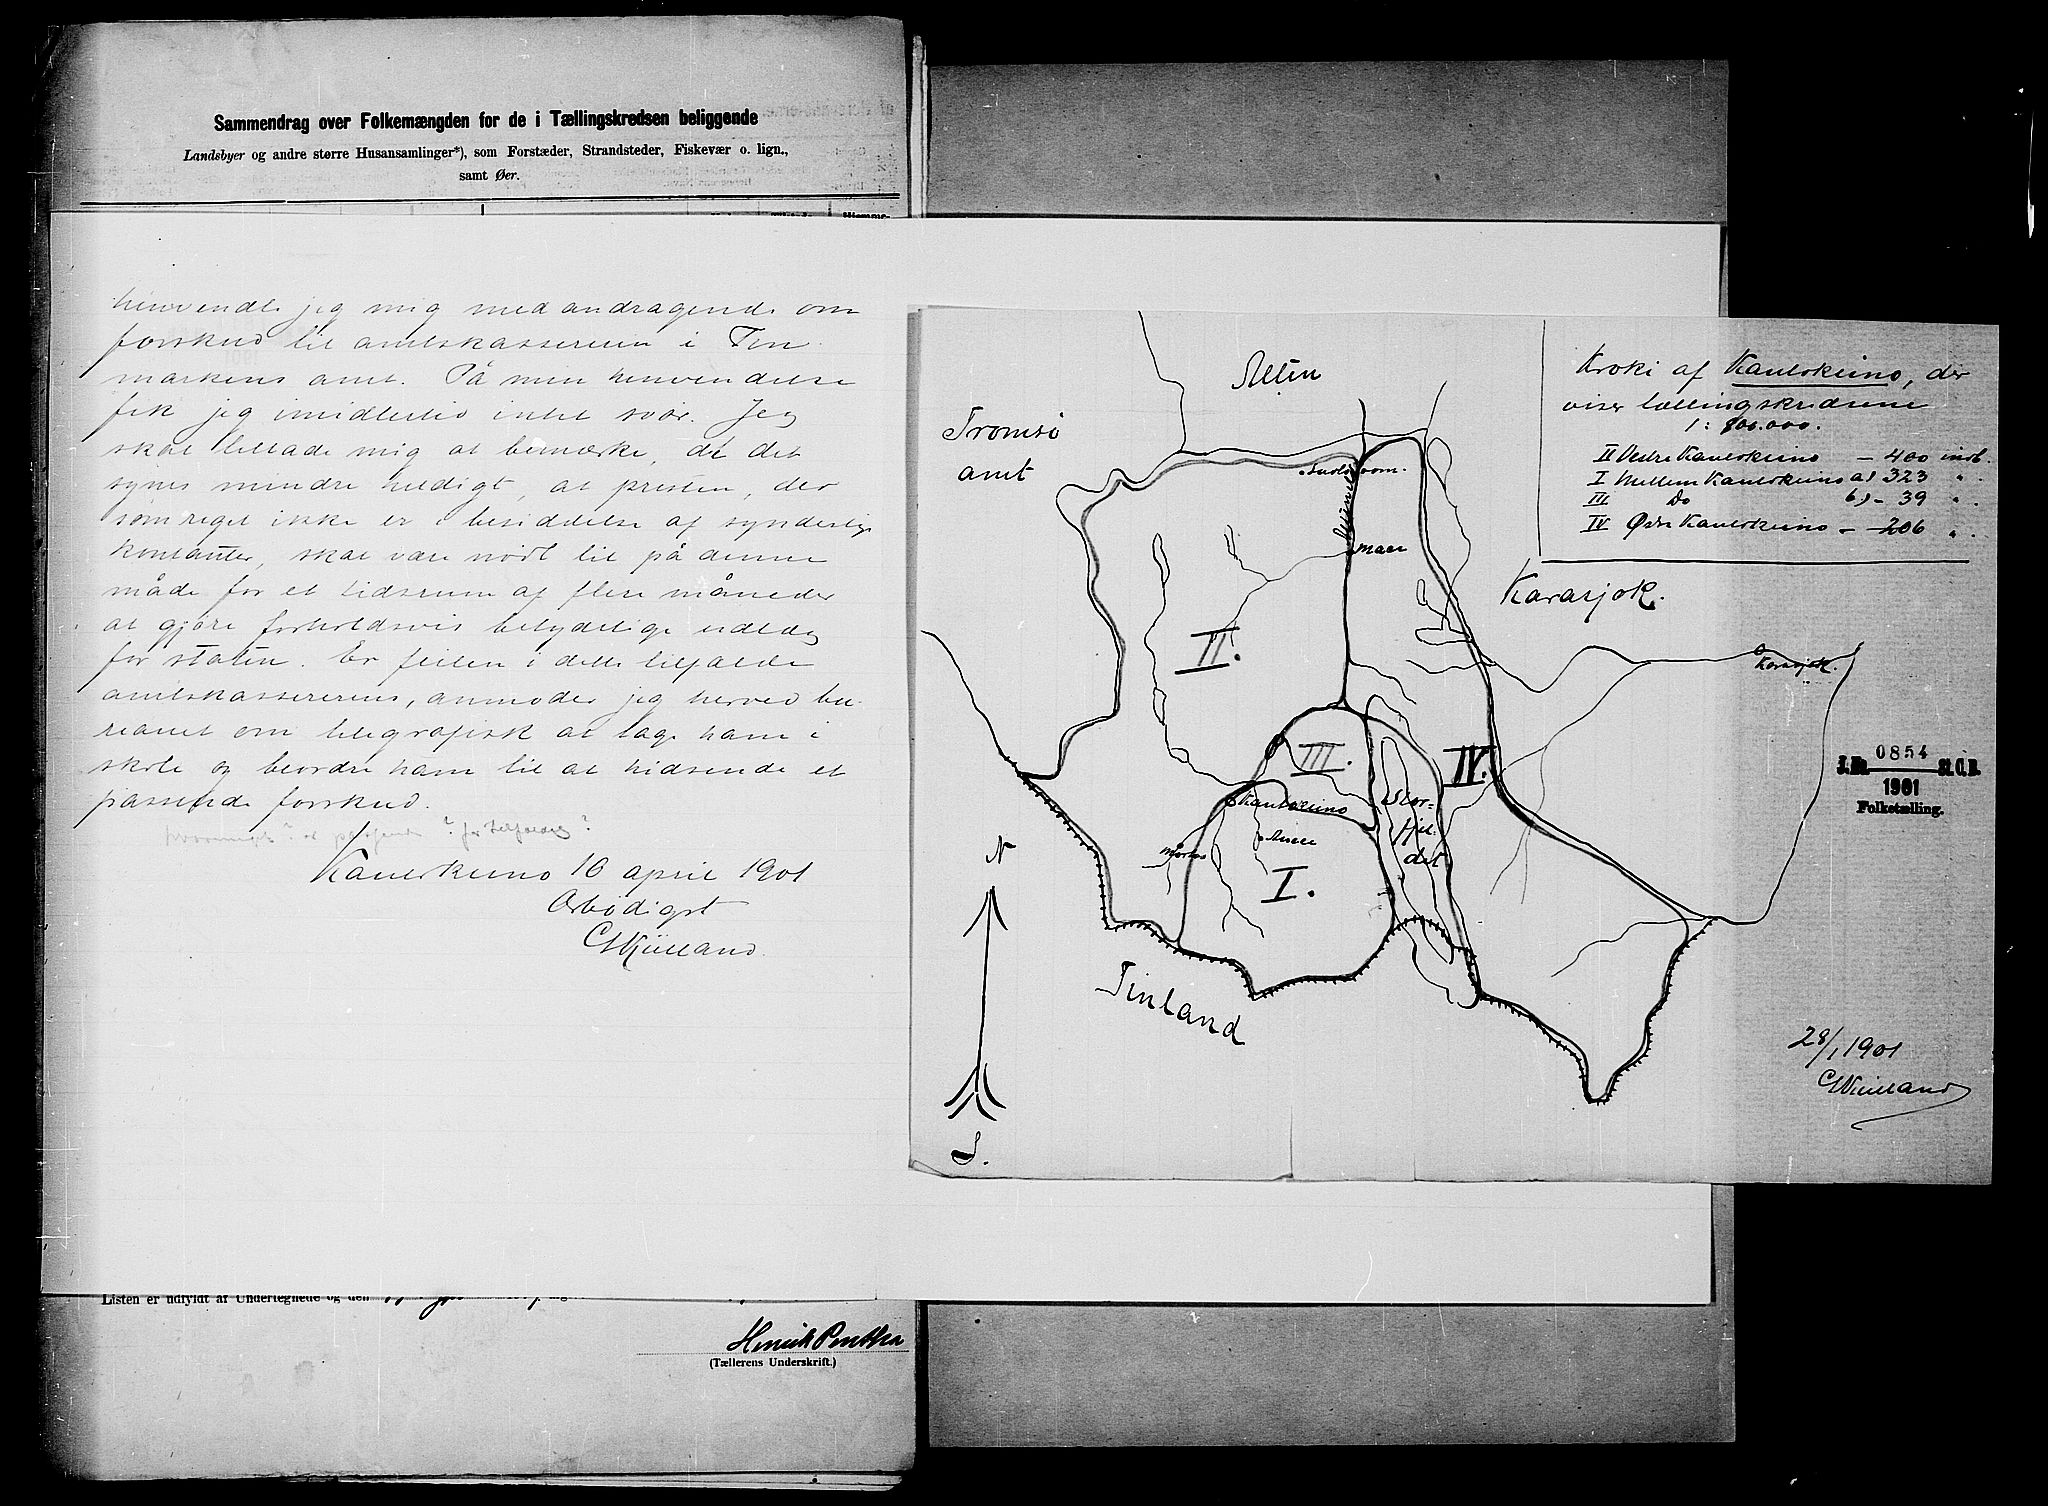 Sammendrag over Folkemængden for de i Tællingskredsen beliggende
Landsbyer og andre større Husansamlinger*), som Forstæder, Strandsteder, Fiskevær o. lign.,
samt Øer.
henvendte jeg mig med andragende om
forskud til amtskassereren i Fin-
markens amt. På min henvendelse
fik jeg imidlertid intet svar. Jeg
skal tillade mig at bemærke, at det
synes mindre heldigt, at presten, der
som reget ikke er i besiddelse af synderlig
kontanter, skal være nødt til på denne
måde for et tidsrum af flere måneder
at gjøre forholdsvis betydelige udlæg
for staten. Er feilen i dette tilfælde
amtskassererens, anmoder jeg herved bu-
reauet om telegrafisk at tage ham i
skole og beordre ham til at hidsende et
passende forskud.
Kautokeino 16 april 1901
Ærbødigst
CSKielland.
Listen er udfyldt af Undertegnede og den
Henrik Penttha
(Tællerens Underskrift.)
Kroki af Kautokeino, der
viser tællingskredsene
1: 800.000.
II Vestre Kautokeino — 400 indb.
I Mellem Kautokeino a) 323 " .
III Do b) — 39 " .
IV Østre Kautokeino — 206 " .
Alten
Tromsø
amt
Karasjok.
Karasjok.
Masi
II.
III.
IV.
Kautokeino
Stor-
fjel-
det
I.
N
S.
Finland
J. No. 0854 St. C. B.
1901
Folketælling.
28/1 1901
CSKielland